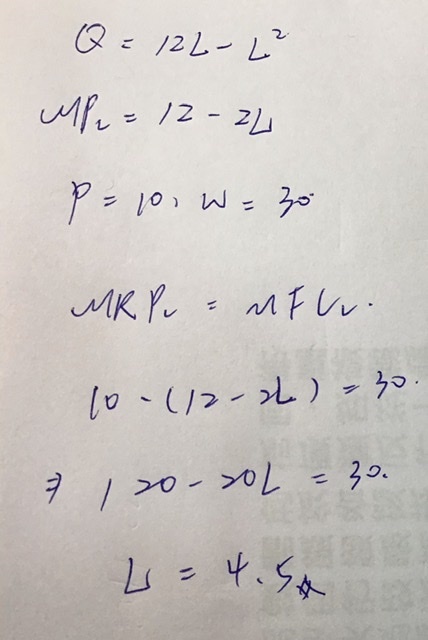 Q = 12L - L²
MP_L = 12 - 2L
P = 10, W = 30
MRP_L = MFC_L.
10 - (12 - 2L) = 30.
⇒ 120 - 20L = 30.
L = 4.5